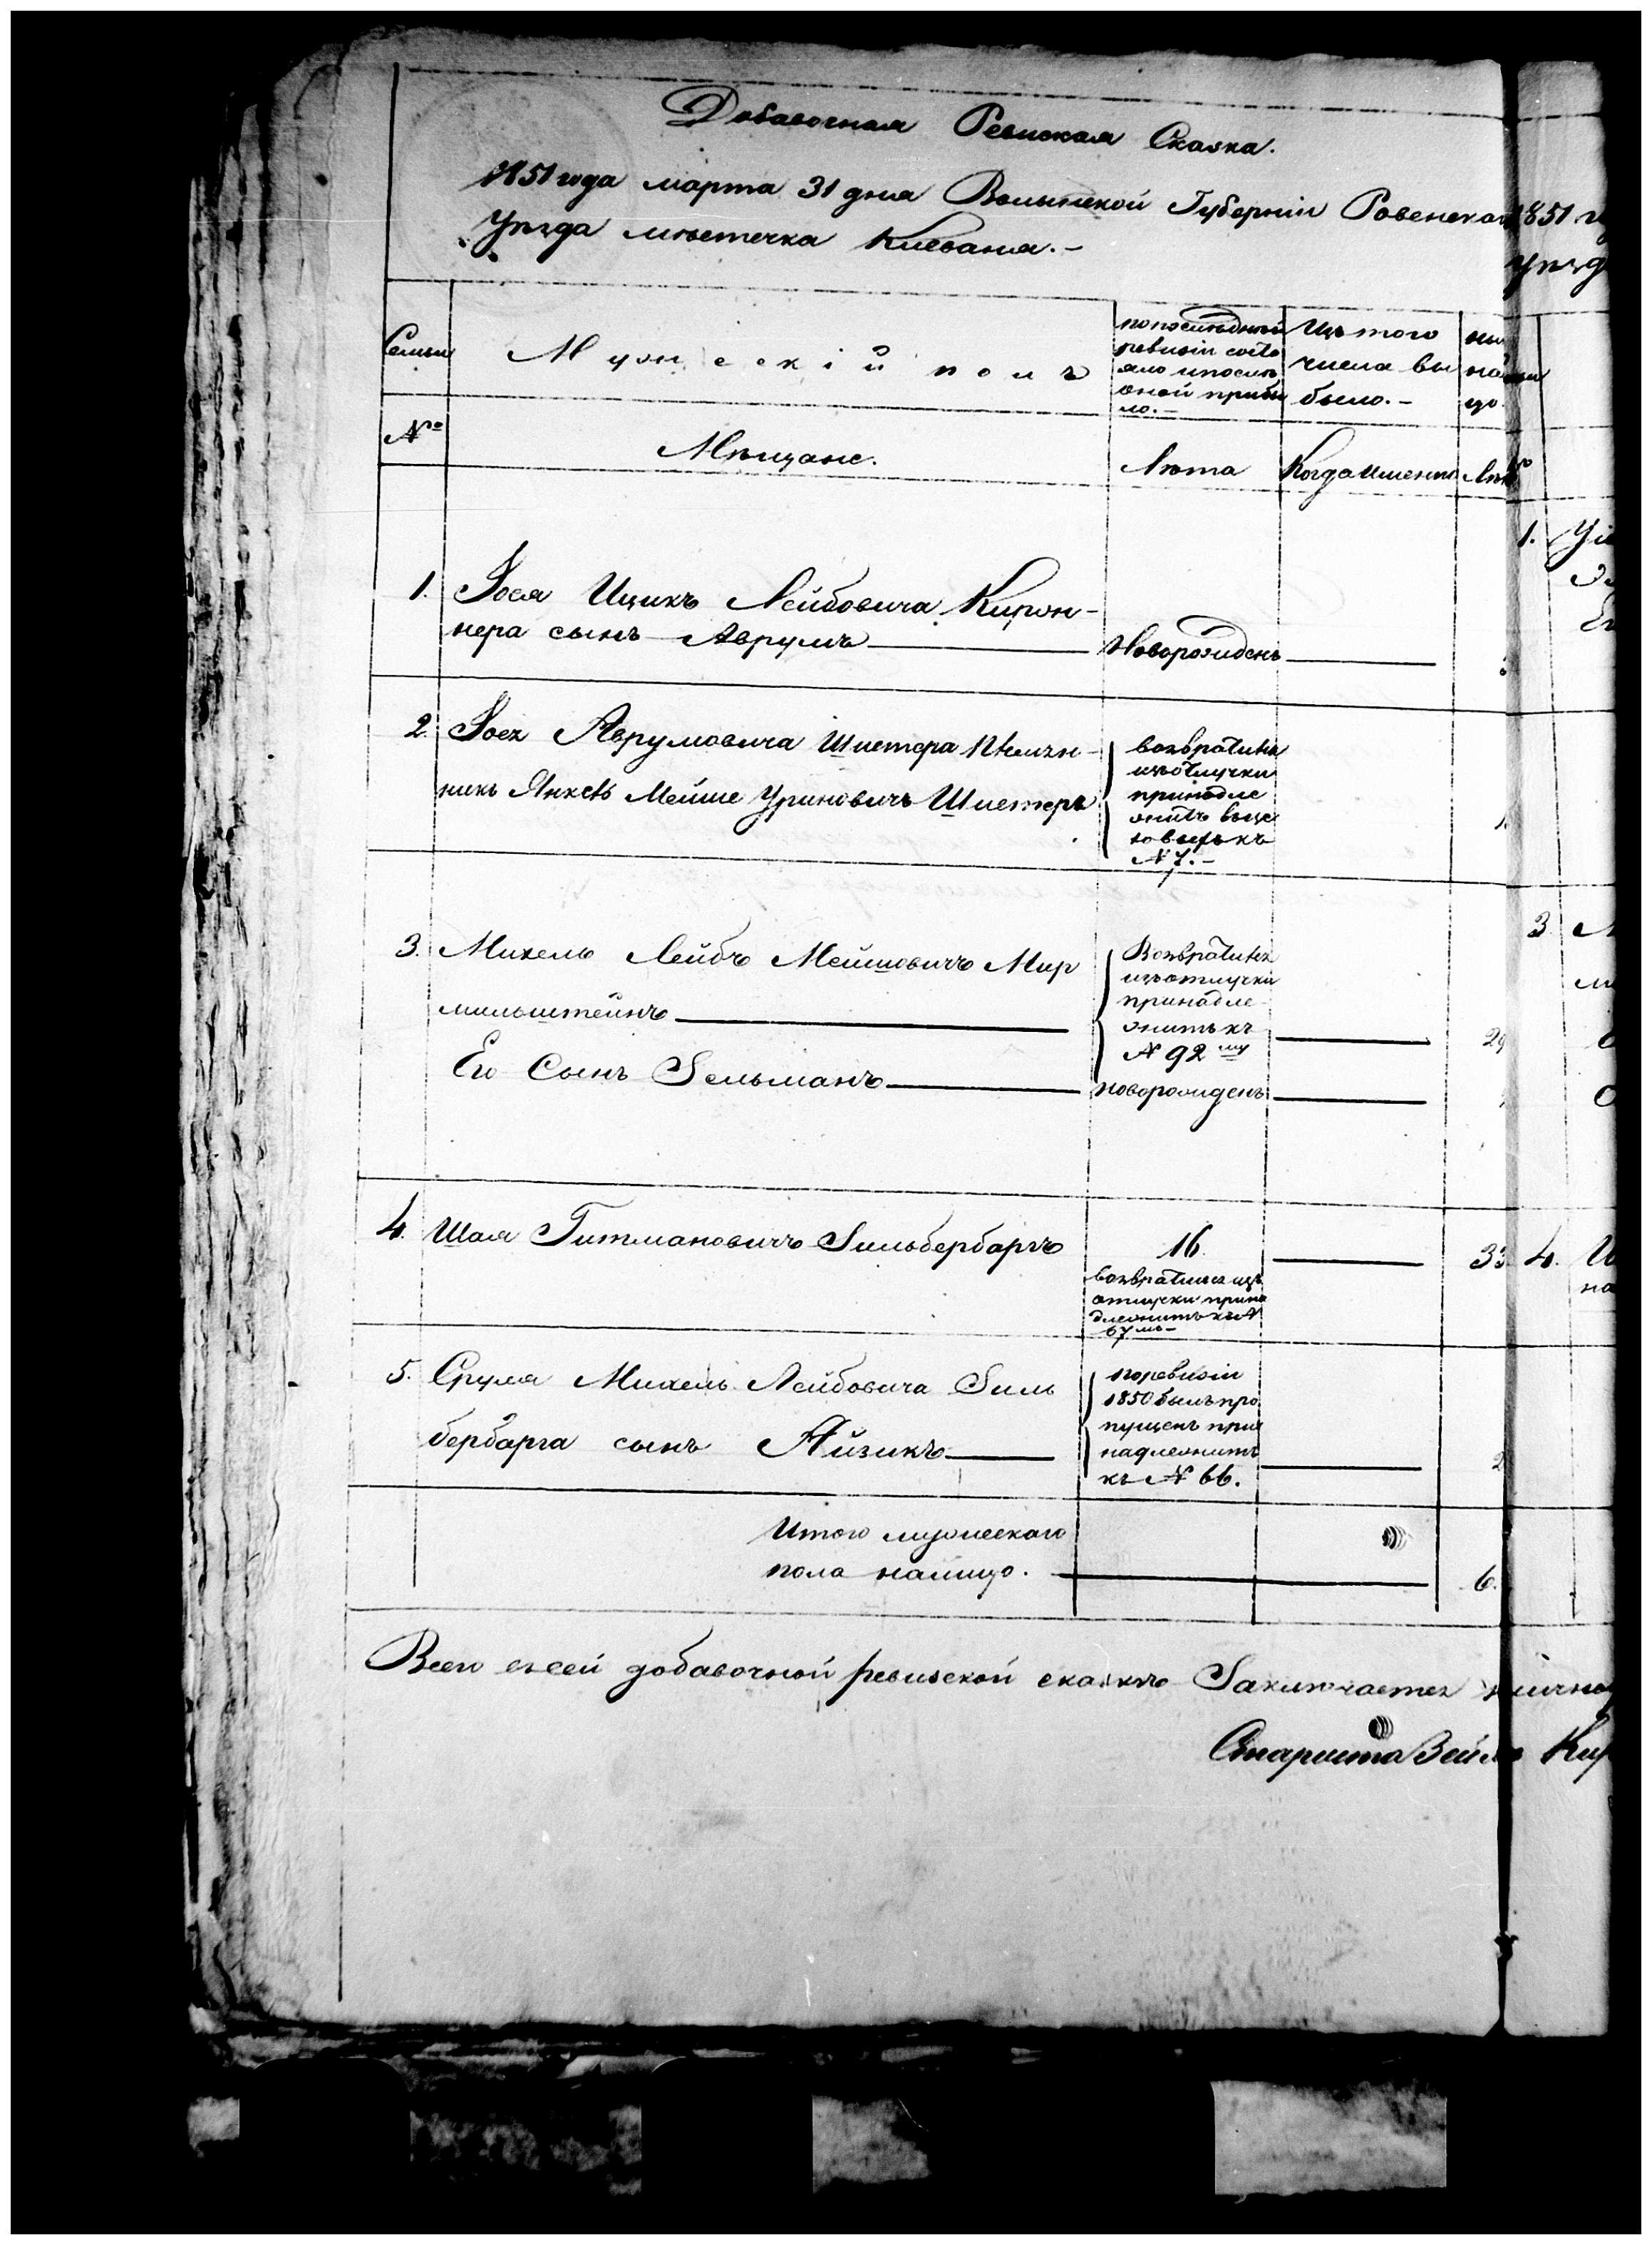 Добавочная Ревиская Сказка.
1851 года марта 31 дня Волынской Губерніи Ровенскаго
Уѣзда мѣстечка Клевана.-
Семьи
Мужескій полъ
по послѣдней
ревизіи состо
яло и послѣ
оной прибы
ло.-
Изъ того
числа вы
было.-
№
Мѣщане.
Лѣта
Когда именно
Лѣт
1. Іося Ицикъ Лейбовича Киржнера
нера сынъ Аврумъ
Новорожденъ
2. Іося Аврумовича Шистера племян-
никъ Янкевъ Мейше Уриновичъ Шистеръ
возвратился
изъ отлучки
принадле
житъ
къ
№ 7.-
3. Михель Лейбъ Мейшовичъ Мир
мильштейнъ
Возвратился
изъ отлучки
принадле-
житъ къ
№ 92 му
29
Его Сынъ Зельманъ
новорожденъ
4. Шая Гитмановичъ Зильбербаргъ
16.
33
возвратился изъ
отлучки прина
длежитъ къ №
67 мъ-
5. Сруля Михель Лейбовича Зиль
бербарга сынъ Айзикъ
по ревизіи
1850 былъ про
пущенъ при
надлежитъ
къ № 66.
2
Итого мужескаго
пола налицо.
6.
Всего в сей добавочной ревиской сказкѣ Заключается
Староста Зейл
1851
Уѣзд
1.
3
4.